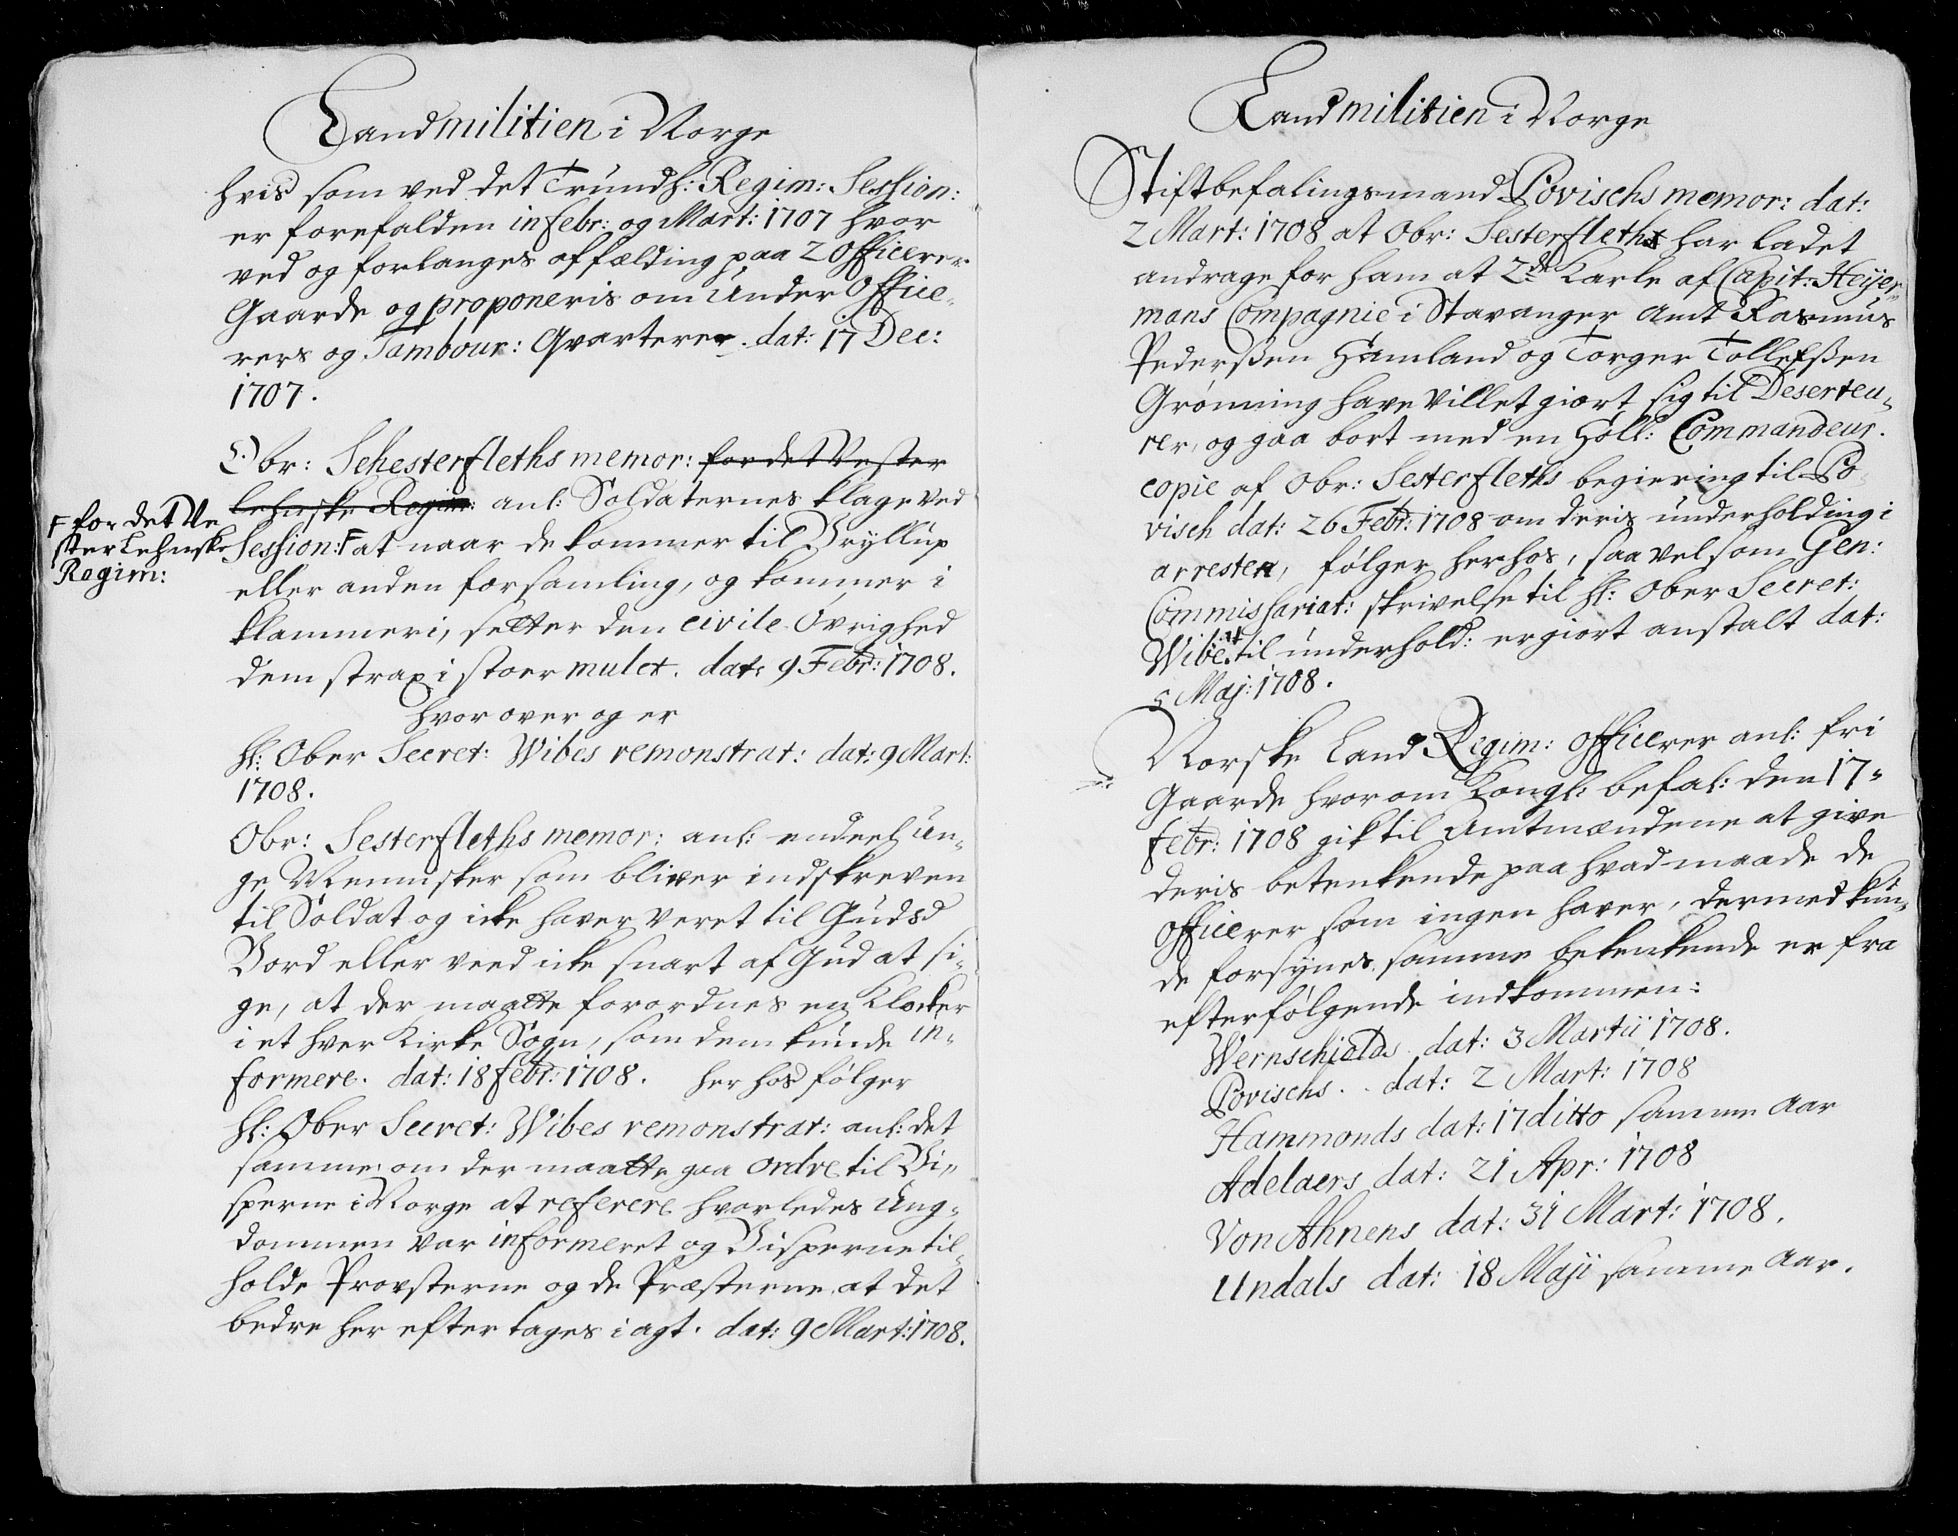 Landmilitien i Norge
hvis som ved det Trundh: Regim: Session:
er forefalden in febr: og Mart: 1707 hvor
ved og forlanges affælding paa 2 Officerer
Gaarde og proponeris om Under Office-
rers og Tambour: Qvarterer. dat: 17 Dec:
1707.
Obr: Sehesterfleths memor: for det Vester
lehnske Regim: anl: Soldaternes klage ved
Ffor det Ve
sterLehnske
Regim:
Session: F at naar de kommer til Bryllup
eller anden forsamling, og kommer i
klammeri, setter den civile Øvrighed
dem strax i stoer mulct. dat: 9 Febr: 1708.
hvor over og er
Hl: Ober Secret: Wibes remonstrat: dat: 9 Mart:
1708.
Obr: Sesterfleths memor: anl: endeel Un-
ge Mennisker som bliver indskreven
til Soldat og icke haver veret til Guds
Bord eller veed icke snart af Gud at si-
ge, at der maatte forordnes en Klocker
i et hver Kirke Sogn, som dem kunde in-
formere. dat: 18 febr: 1708. her hos følger
Hl: Ober Secret: Wibes remonstrat: anl: det
samme; om der maatte gaa Ordre til Bi-
sperne i Norge at referere hvorledes Ung-
dommen var informeret og Bisperne til-
holde Provsterne og de Præsterne at det
bedre her efter tages i agt. dat: 9 Mart: 1708.
Landmilitien i Norge
Stiftbefalingsmand Povischs memor: dat:
2 Mart: 1708 at Obr: Sesterfleth har ladet
andrage for ham at 2de Karle af Capit: Heijer-
mans Compagnie i Stavanger Amt Rasmus
Pederßen Hamland og Torger Tollefßen
Grønning have villet giort sig til Deserteu-
rer, og gaa bort med en Holl: Commandeur.
copie af Obr: Sesterfleths begiering til Po
visch dat: 26 Febr: 1708 om deris underholding i
arresten, følger herhos, saavelsom Gen:
Commissariat: skrivelse til Hl: Ober Secret:
Wibe at til underhold: er giort anstalt dat:
5 Maj: 1708.
Norske Land Regim: Officerer anl: fri
Gaarde hvorom Kongl: befal: den 17-
febr: 1708 gik til Amtmændene at give
deris betenkende paa hvad maade de
Officerer som ingen haver, dermed kun-
de forsynes, samme betenkende er fra
efterfølgende indkommen:
Wernschiolds dat: 3 Martii 1708.
Povischs . . dat: 2 Mart: 1708
Hammonds dat: 17 ditto samme Aar
Adelaers dat: 21 Apr: 1708
Von Ahnens dat: 31 Mart: 1708.
Undals dat: 18 Maji samme Aar.